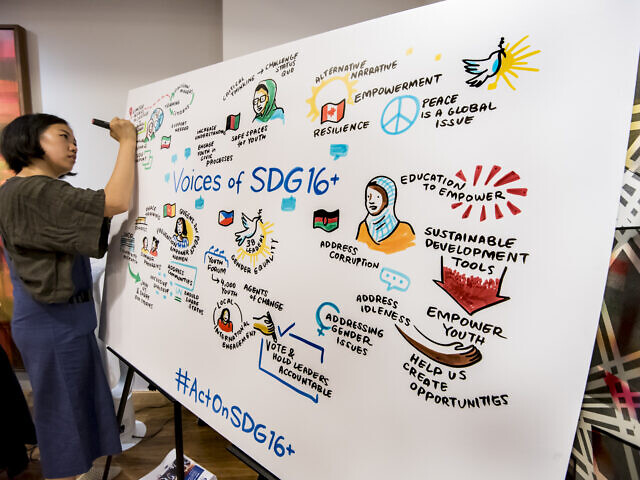 CRITICAL
THINKING → CHALLENGE
STATUS
QUO
SUPPORT NEEDED
INCREASE
UNDERSTANDING
ENGAGE
YOUTH IN
CIVIC
PROCESSES
SAFE SPACES
FOR YOUTH
ALTERNATIVE
NARRATIVE
EMPOWERMENT
RESILIENCE
PEACE
IS A GLOBAL
ISSUE
Voices of SDG16+
38
LEADERS
GENDER EQUALITY
YOUTH
FORUM
→ 4,000
YOUTH
LOCAL
INTERNATIONAL
ENGAGEMENT
AGENTS
OF CHANGE
VOTE &
HOLD LEADERS
ACCOUNTABLE
ADDRESS
CORRUPTION
ADDRESS
IDLENESS
ADDRESSING
GENDER
ISSUES
EDUCATION
TO EMPOWER
SUSTAINABLE
DEVELOPMENT
TOOLS
EMPOWER
YOUTH
HELP US
CREATE
OPPORTUNITIES
#ActOnSDG16+